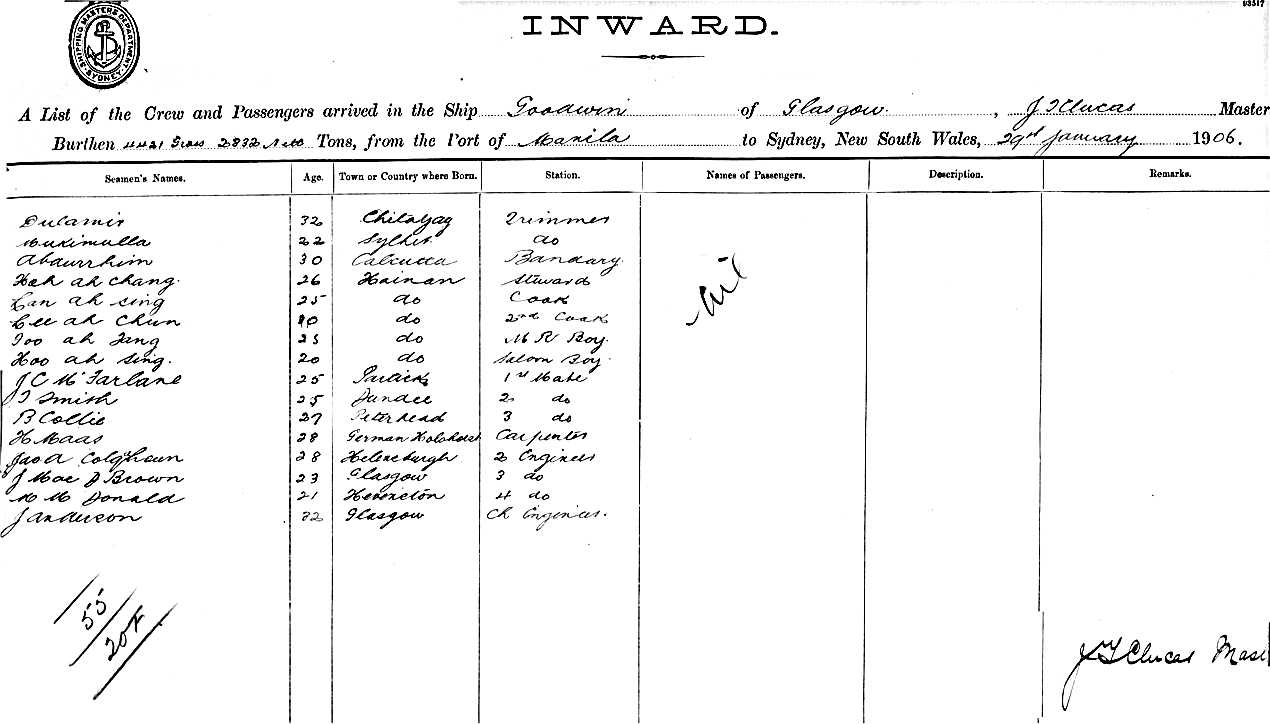 03517
SHIPPING MASTERS DEPARTMENT SYDNEY
INWARD.
A List of the Crew and Passengers arrived in the Ship Goodwin of Glasgow, J T Clucas Master
Burthen 4421 Gross 2832 Nett Tons, from the Port of Manila to Sydney, New South Wales, 29th January 1906.
Seamen's Names. Age. Town or Country where Born. Station. Names of Passengers. Description. Remarks.
32 Trimmer
22 Sylhet do
Abdurrhim 30 Calcutta Bandary
Hah ah Chang. 26 Hainan Steward
Lan ah Sing 25 do Cook
Lee ah Chun do 2nd Cook
Foo ah Tang do M R Boy
Hoo ah Sing. 20 do Saloon Boy.
Nil
J C McFarlane 25 Partick 1st Mate
T Smith 25 Dundee 2 do
B Collie 27 Peterhead 3 do
H Maas 28 German Carpenter
Jas A Colqhoun 28 Helensburgh 2 Engineer
J Mac D Brown 23 Glasgow 3 do
Mc Donald 21 4 do
J Anderson 32 Glasgow Ch Engineer.
55
20 F
J T Clucas Mas